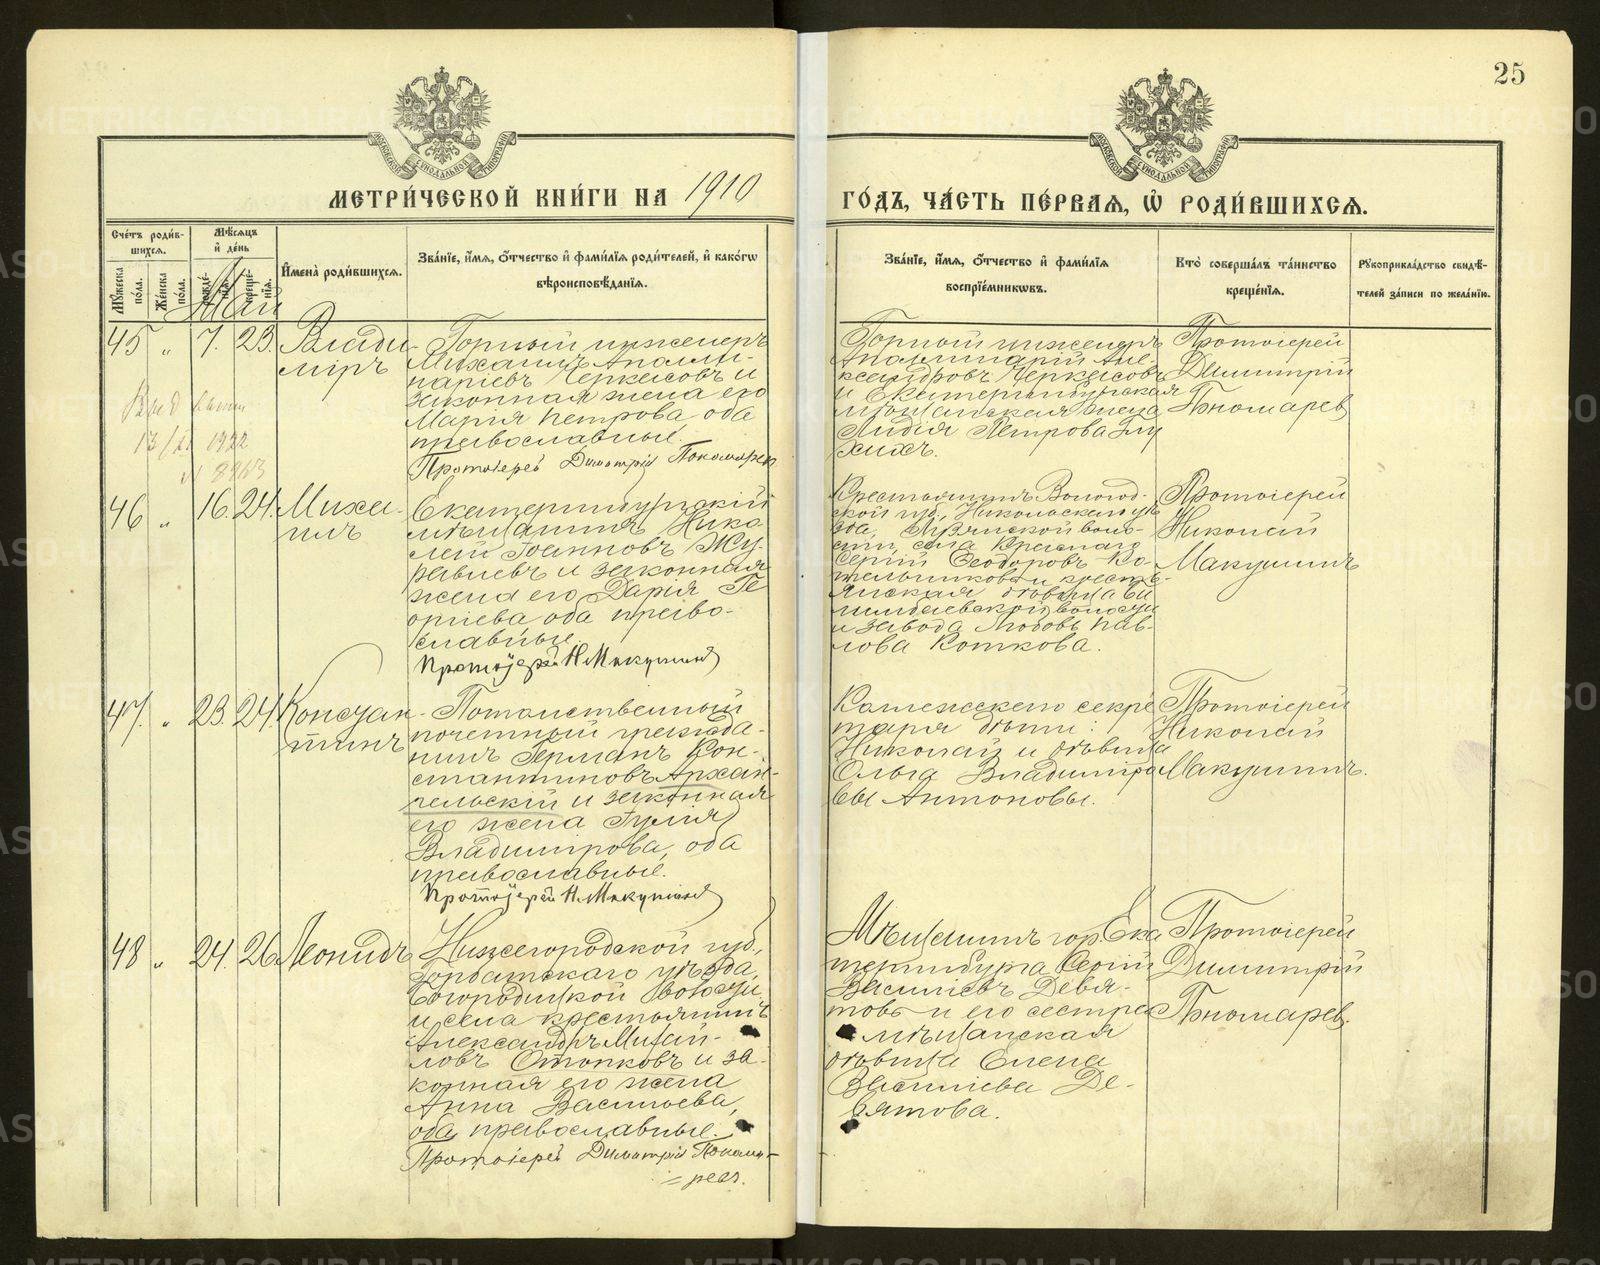 25
МЕТРИ́ЧЕСКОЙ КНИ́ГИ НА 1910
ГО́ДЪ, ЧА́СТЬ ПЕ́РВАѦ, Ѡ҆ РОДИ́ВШИХСѦ.
МОСКОВСКОЙ СѴНОДАЛЬНОЙ ТИПОГРАФІИ
МОСКОВСКОЙ СѴНОДАЛЬНОЙ ТИПОГРАФІИ
Сче́тъ роди́в-
шихсѧ.
Мꙋ́жеска по́ла.
Же́нска по́ла.
Мѣ́сѧцъ
и҆ де́нь
рожде́-
нїѧ.
креще́-
нїѧ.
И҆мена̀ роди́вшихсѧ.
Зва́нїе, и҆́мѧ, ѻ҆́тчество и҆ фами́лїѧ роди́телей, и҆ како́гѡ
вѣроисповѣ́данїѧ.
Зва́нїе, и҆́мѧ, ѻ҆́тчество и҆ фами́лїѧ
воспрїе́мникѡвъ.
Кто̀ соверша́лъ та́инство
креще́нїѧ.
Рꙋкоприкла́дство свидѣ́-
телей за́писи по жела́нїю.
Май
45 " 7. 23. Влади-
міръ
Горный инженеръ
Михаилъ Аполли-
наріевъ Черкасовъ и
законная жена его
Марія Петрова оба
православные.
Протоіерей Димитрій Пономарев
Горный инженеръ
Аполлинарій Але-
ксандровъ Черкасовъ
и Екатеринбургская
мѣщанская жена
Лидія Петрова Глу
хихъ.
Протоіерей
Димитрій
Пономарев
13/ 1922
46 " 16. 24. Миха-
илъ
Екатеринбургскій
мѣщанинъ Нико-
лай Іоанновъ Жу-
равлевъ и законная
жена его Дарія Ге
оргіева оба право-
славные.
Протоіерей Н. Макушинъ
Крестьянинъ Вологод-
ской губ., Никольскаго уѣ
села
Сергій Ѳеодоровъ Ко-
тельниковъ и кресть-
янская дѣвица Би
лимбаевской волости
и завода Любовь Пав-
лова Коткова.
Протоіерей
Николай
Макушинъ
47. " 23. 24. Констан-
тинъ
Потомственный
почетный гражда-
нинъ Германъ Кон-
стантиновъ Архан-
гельскій и законная
его жена Іулія
Владимірова, оба
православные.
Протоіерей Н. Макушинъ
Коллежскаго секре
таря дѣти:
Николай и дѣвица
Ольга Владиміро
вы Антоновы.
Протоіерей
Николай
Макушинъ.
48 " 24. 26. Леонидъ
Нижегородской губ.,
Горбатскаго уѣзда,
Богородицкой волости
и села крестьянинъ
Александръ Михай-
ловъ Отопковъ и за-
конная его жена
Анна Васильева,
оба православные.
Протоіерей Димитрій Понома-
= ревъ.
Мѣщанинъ гор. Ека
теринбурга Сергій
Василіевъ Девя-
товъ и его сестра
мѣщанская
дѣвица Елена
Василіева Де-
вятова.
Протоіерей
Димитрій
Пономарев.
METRIKI.GASO-URAL.RU